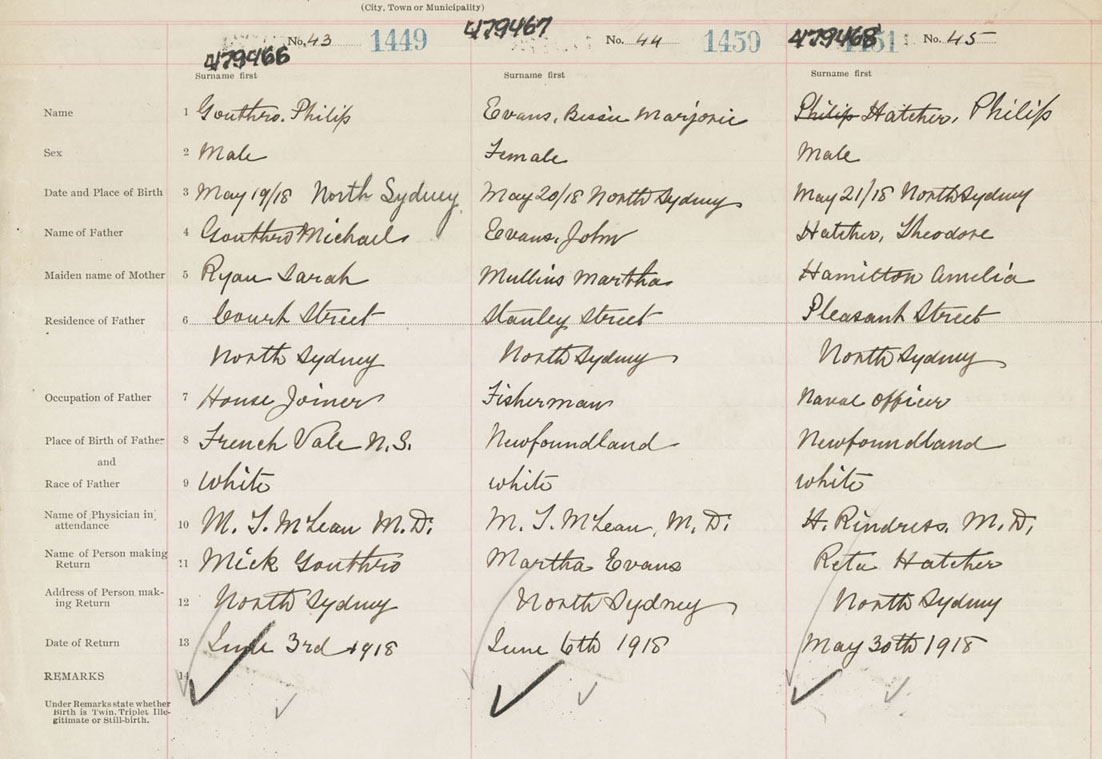 (City, Town or Municipality)
479466 No. 43 1449 479467 No. 44 1450 479468 1451 No. 45
Surname first Surname first Surname first
Name 1 Gouthro. Philip Evans, Bessie Marjorie Philip Hatcher, Philip
Sex 2 Male Female Male
Date and Place of Birth 3 May 19/18 North Sydney May 20/18 North Sydney May 21/18 North Sydney
Name of Father 4 Gouthro Michael Evans, John Hatcher, Theodore
Maiden name of Mother 5 Ryan Sarah Mullins Martha Hamilton Amelia
Residence of Father 6 Court Street Stanley Street Pleasant Street
North Sydney North Sydney North Sydney
Occupation of Father 7 House Joiner Fisherman Naval Officer
Place of Birth of Father 8 French Vale N.S. Newfoundland Newfoundland
and
Race of Father 9 White white white
Name of Physician in attendance 10 M. T. McLean M.D. M. T. McLean, M.D. H. Rindress, M.D.
Name of Person making Return 11 Mick Gouthro Martha Evans Reta Hatcher
Address of Person mak-ing Return 12 North Sydney North Sydney North Sydney
Date of Return 13 June 3rd 1918 June 6th 1918 May 30th 1918
REMARKS 14
Under Remarks state whether
Birth is Twin, Triplet Ille-
gitimate or Still-birth.